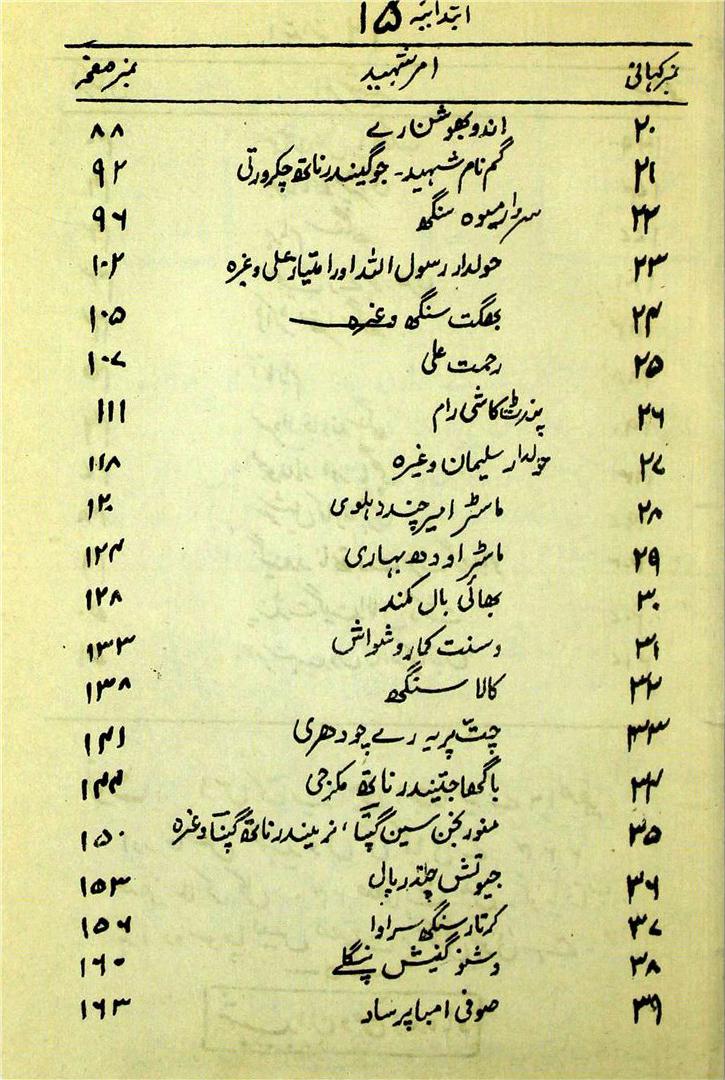 ابتدائیہ ۱۵
نمبر کہانی امر شہید نمبر صفحہ
۲۰ اندو بھوشن رے ۸۸
۲۱ گم نام شہید۔ جوگیندر ناتھ چکرورتی ۹۲
۲۲ سردار میوہ سنگھ ۹۶
۲۳ حولدار رسول اللہ اور امتیاز علی وغیرہ ۱۰۲
۲۴ بھگت سنگھ وغیرہ ۱۰۵
۲۵ رحمت علی ۱۰۷
۲۶ پنڈت کاشی رام ۱۱۱
۲۷ حولدار سلیمان وغیرہ ۱۱۸
۲۸ ماسٹر امیر چند دہلوی ۱۲۰
۲۹ ماسٹر اودھ بہاری ۱۲۴
۳۰ بھائی بال مکند ۱۲۸
۳۱ وسنت کمار وشواش ۱۳۳
۳۲ کالا سنگھ ۱۳۸
۳۳ چت پریہ رے چودھری ۱۴۱
۳۴ باگھا جتیندر ناتھ مکرجی ۱۴۴
۳۵ منورنجن سین گپتا، نریندر ناتھ گپتا وغیرہ ۱۵۰
۳۶ جیوتش چندر پال ۱۵۳
۳۷ کرتار سنگھ سراوا ۱۵۶
۳۸ وشنو گنیش پنگلے ۱۶۰
۳۹ صوفی امبا پرساد ۱۶۳